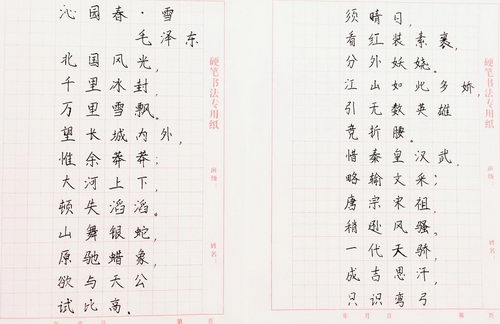 沁园春·雪
毛泽东
北国风光,
千里冰封,
万里雪飘。
望长城内外,
惟余莽莽;
大河上下,
顿失滔滔。
山舞银蛇,
原驰蜡象,
欲与天公
试比高。
硬笔书法专用纸
班级:
姓名:
年 月 日 第 页
须晴日,
看红装素裹,
分外妖娆。
江山如此多娇,
引无数英雄
竞折腰。
惜秦皇汉武,
略输文采;
唐宗宋祖,
稍逊风骚。
一代天骄,
成吉思汗,
只识弯弓
硬笔书法专用纸
班级:
姓名:
年 月 日 第 页